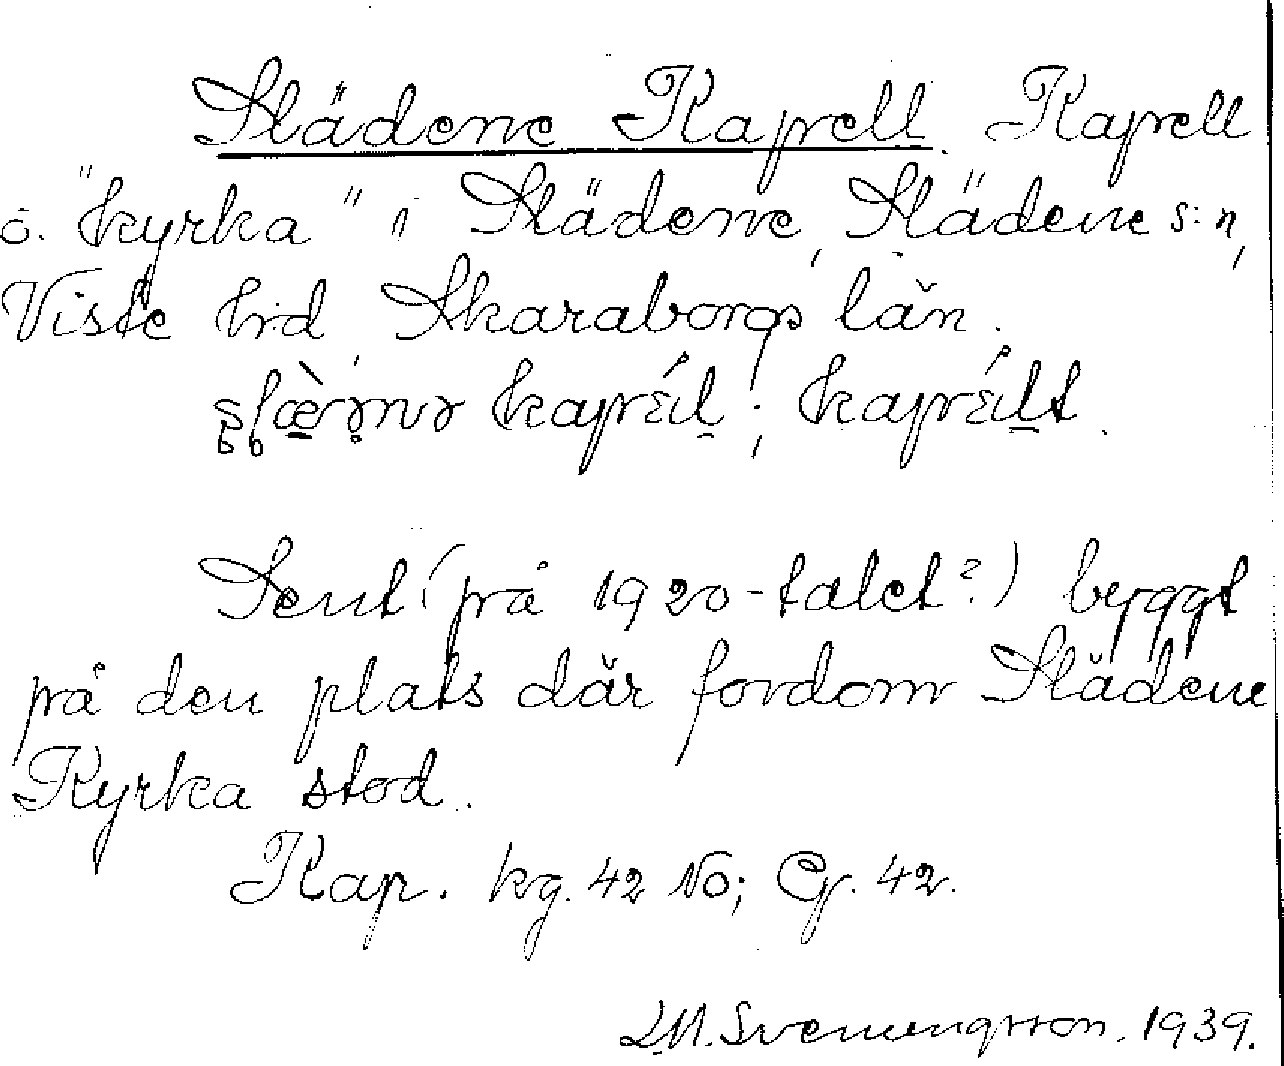 Slädene Kapell. Kapell
o. "kyrka" i Slädene, Slädene s:n,
Viste hd, Skaraborgs län.
kapɛ́l ; kapɛ́lt.
Sent (på 1920-talet?) byggt
på den plats där fordom Slädene
Kyrka stod.
Kap. kg. 42 No; G. 42.
Svenungsson. 1939.